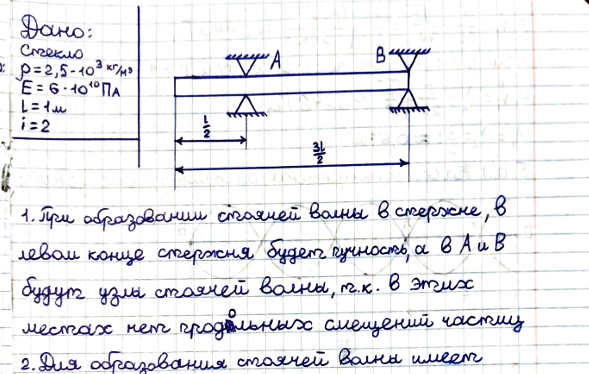 Дано:
Стекло
ρ = 2,5 · 10³ кг/м³
E = 6 · 10¹⁰ Па
l = 1 м
i = 2
A
B
l/2
3l/2
1. При образовании стоячей волны в стержне, в
левом конце стержня будет пучность, а в A и B
будут узлы стоячей волны, т.к. в этих
местах нет продольных смещений частиц
2. Для образования стоячей волны имеет